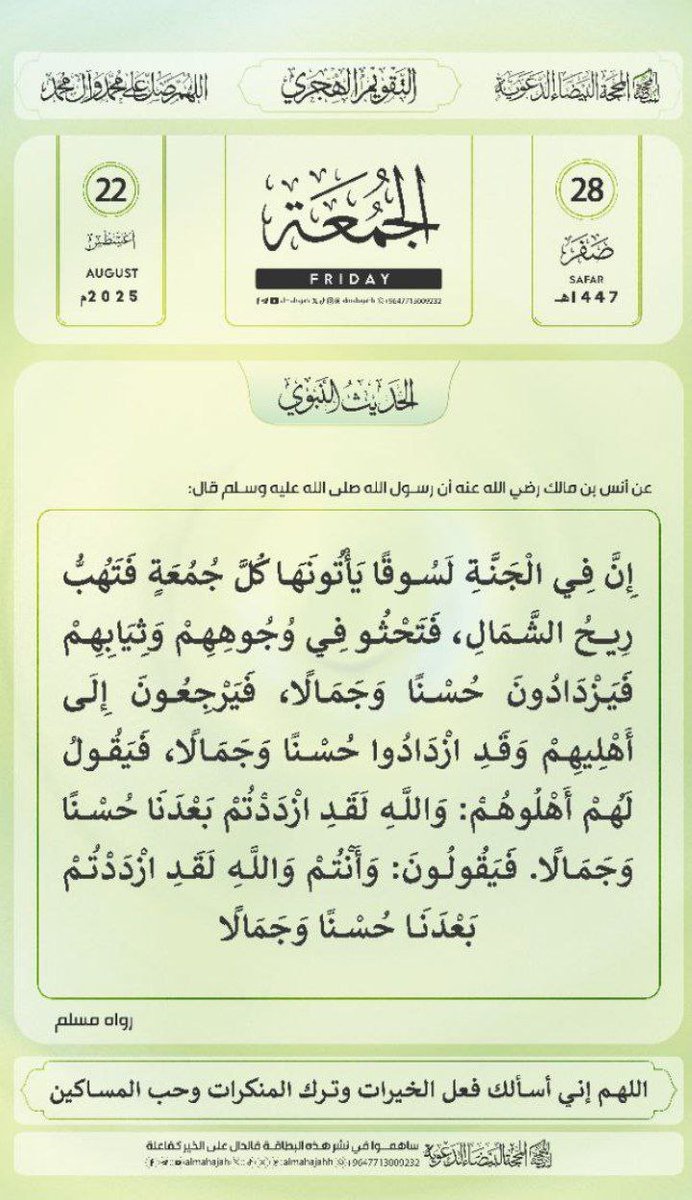 المحجة البيضاء الدعوية
التقويم الهجري
اللهم صل على محمد وآل محمد
28
صفر
SAFAR
1447هـ
الجُمُعَة
FRIDAY
almahajah almahajahh +9647713009232
22
أغسطس
AUGUST
2025م
الحديث النبوي
عن أنس بن مالك رضي الله عنه أن رسول الله صلى الله عليه وسلم قال:
إِنَّ فِي الْجَنَّةِ لَسُوقًا يَأْتُونَهَا كُلَّ جُمُعَةٍ فَتَهُبُّ
رِيحُ الشَّمَالِ، فَتَحْثُو فِي وُجُوهِهِمْ وَثِيَابِهِمْ
فَيَزْدَادُونَ حُسْنًا وَجَمَالًا، فَيَرْجِعُونَ إِلَى
أَهْلِيهِمْ وَقَدِ ازْدَادُوا حُسْنًا وَجَمَالًا، فَيَقُولُ
لَهُمْ أَهْلُوهُمْ: وَاللَّهِ لَقَدِ ازْدَدْتُمْ بَعْدَنَا حُسْنًا
وَجَمَالًا. فَيَقُولُونَ: وَأَنْتُمْ وَاللَّهِ لَقَدِ ازْدَدْتُمْ
بَعْدَنَا حُسْنًا وَجَمَالًا
رواه مسلم
اللهم إني أسألك فعل الخيرات وترك المنكرات وحب المساكين
المحجة البيضاء الدعوية
ساهموا في نشر هذه البطاقة فالدال على الخير كفاعلة
almahajah almahajahh +9647713009232